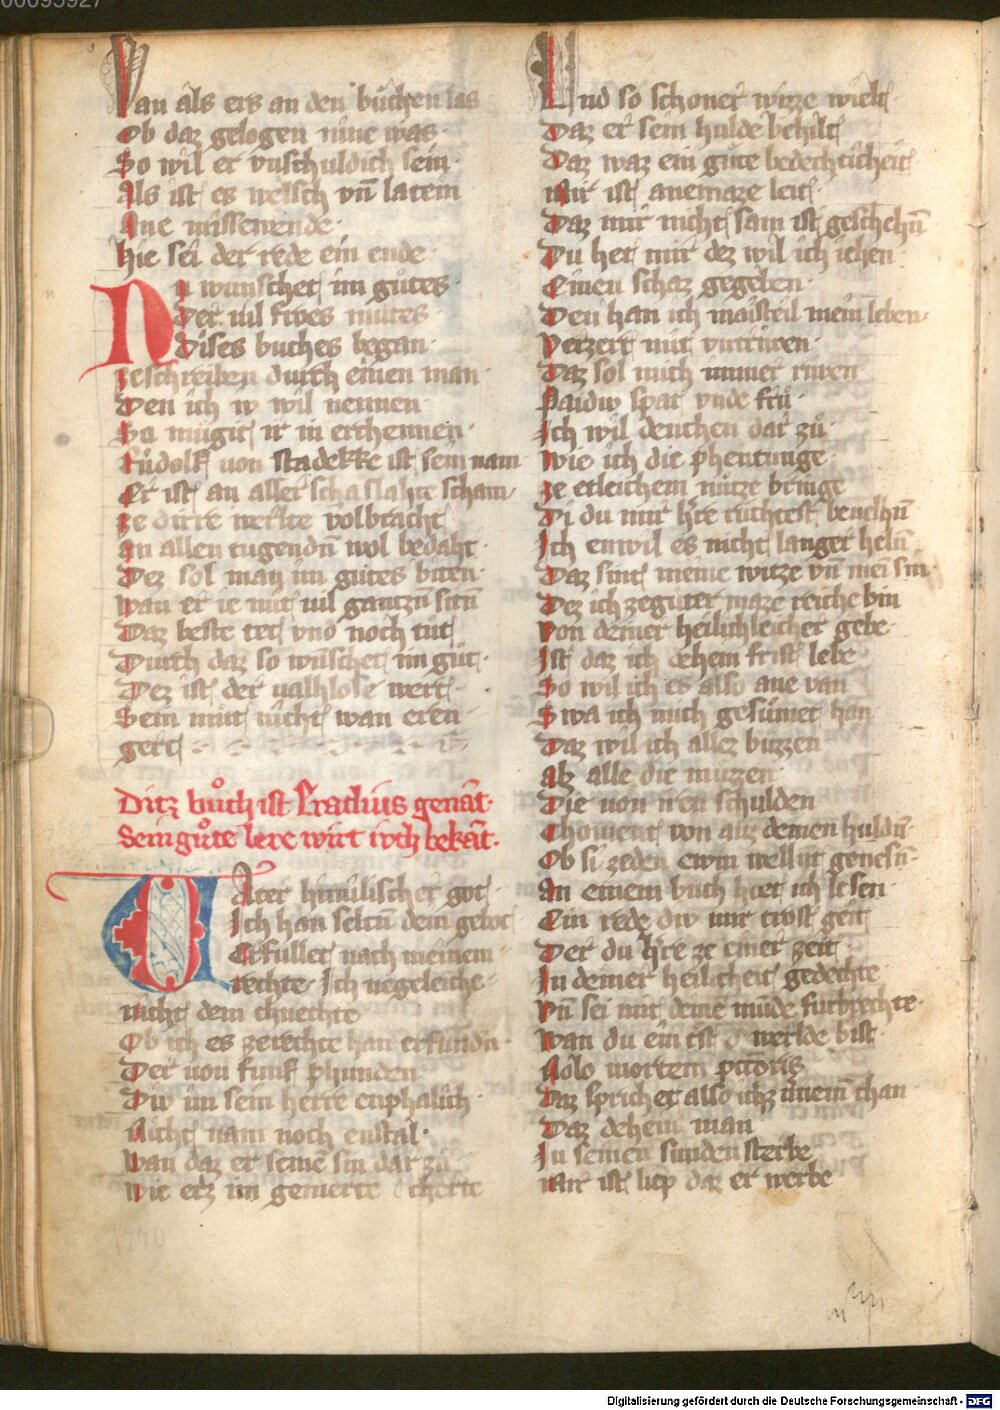 00095927
Wan als ers an den bůchen las
Ob daz gelogen niue was
So wil er vnschuldich sein
Als ist es welsch vn̄ latein
Ane missewende
Hie sei der rede ein ende
Nu wunschet im gůtes
Der uil frves mutes
Dises buches began
zeschreiben durch einen man
Den ich iv wil nennen
So mugit ir in erchennen
Růdolf uon stadekke ist sein nam
Er ist an aller schaslahte scham
ze dirre werlte volbracht
an allen tugendn̄ wol bedaht
Dez sol man im gutes biten
wan er ie mit uil gantzn̄ sitn̄
Daz beste tet vnd noch tůt
Durch daz so wůschet im gůt
Dez ist der valsches lose wert
Sein můt nicht wan eren
gert
Ditz bůch ist Eraclius genāt
Sein gůte lere wirt ivch bekāt
Alter himilischer got
Ich han seltn̄ dein gebot
Erfullet nach meinem
rechte Ich negeleiche
nicht dem chnechte
Ob ich es zerechte han erfundn̄
Der uon funf phunden
Div im sein herre enphalich
Nicht nam noch enstal
Wan daz er seinē sin dar zů
Wie erz im gemerte cherte
Vnd so schoner witze wielt
Daz er sein hulde behilt
Daz waz ein gůte bedechticheit
Mir ist anemaze leit
Daz mir nicht sam ist geschehn̄
Du het mir dez wil ich iehen
Einen schaz gegeben
Den han ich maisteil mein leben
Verzert mit vntriwen
Daz sol mich immer riwen
Paidiv spat vnde frů
Ich wil denchen dar zů
Wie ich die phenninge
ze etleichem nutze bringe
Di du mir h're ruchtest beuelhn̄
Ich enwil es nicht langer heln̄
Daz sint meine witze vn̄ mei sin
Dez ich zeguter maze reiche bin
Von deiner heilichleicher gebe
Ist daz ich dehein frist lebe
So wil ich es also ane van
Swa ich mich gesůmet han
Daz wil ich allez buzzen
als alle die muzzen
Die uon iren schulden
Choment von aliz deinen huldn̄
Ob si zeden ewin wellnt genesn̄
An einem buch hort ich lesen
Ein rede div mir trost geit
Der du h're ze einer zeit
In deiner heilicheit gedechte
Vn̄ sei mit deinē mūde furbrechte
Wan du ein crist d' werlde bist
Nolo mortem pcc̄oris
Daz sprichet also ichz uneinē chan
Daz dehein man
In seinen sunden sterbe
Mir ist liep daz er werbe
Digitalisierung gefördert durch die Deutsche Forschungsgemeinschaft - DFG